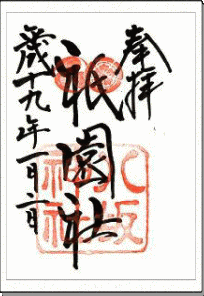 奉拝
祇園社
八坂神社
平成十九年一月二日